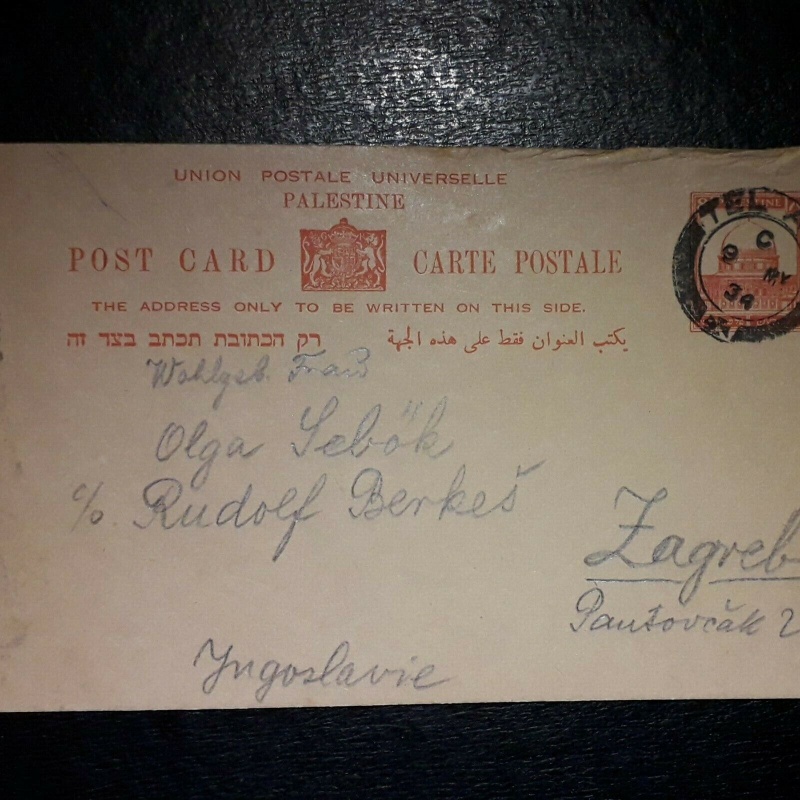 UNION POSTALE UNIVERSELLE
PALESTINE
POST CARD CARTE POSTALE
THE ADDRESS ONLY TO BE WRITTEN ON THIS SIDE.
רק הכתובת תכתב בצד זה يكتب العنوان فقط على هذه الجهة
TEL A
C
9 MY
34
Wohlgeb. Frau
Olga Sebők
c/o. Rudolf Berkeš
Zagreb
Pantovčak 2
Jugoslavie